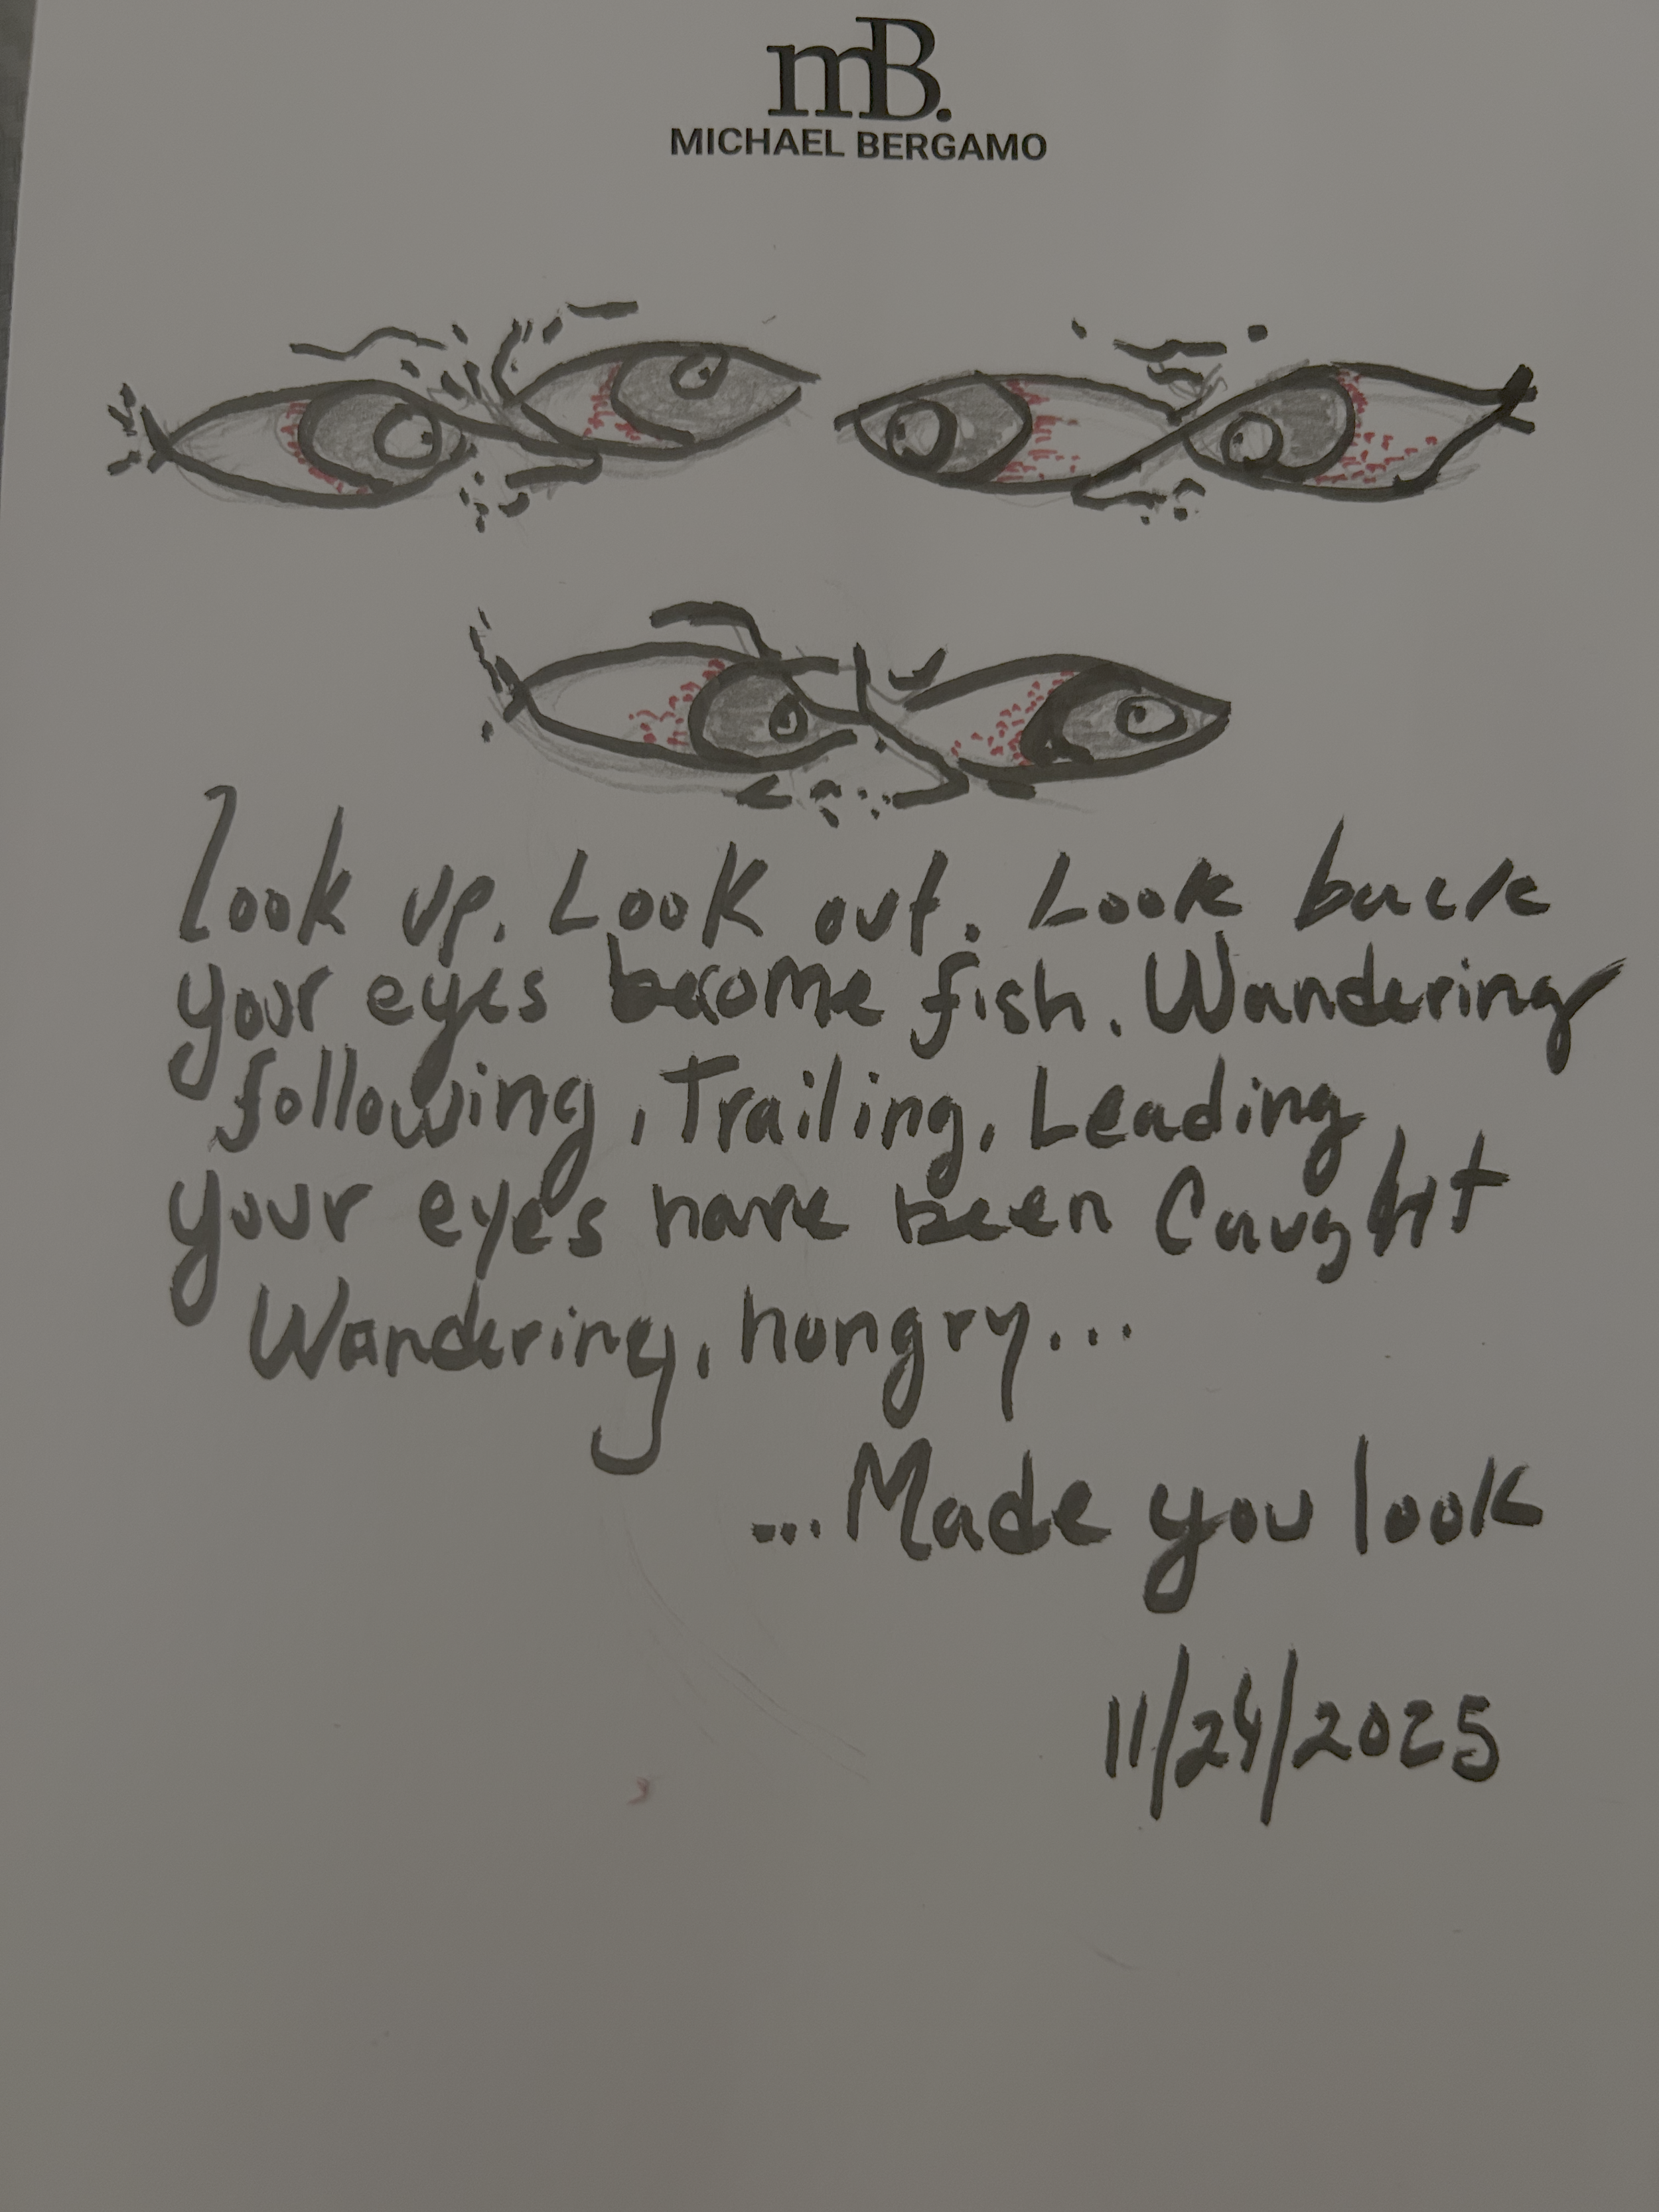 mB.
MICHAEL BERGAMO
Look up. Look out. Look back
your eyes become fish. Wandering
following, Trailing, Leading
your eyes have been Caught
Wandering, hungry...
...Made you look
11/24/2025